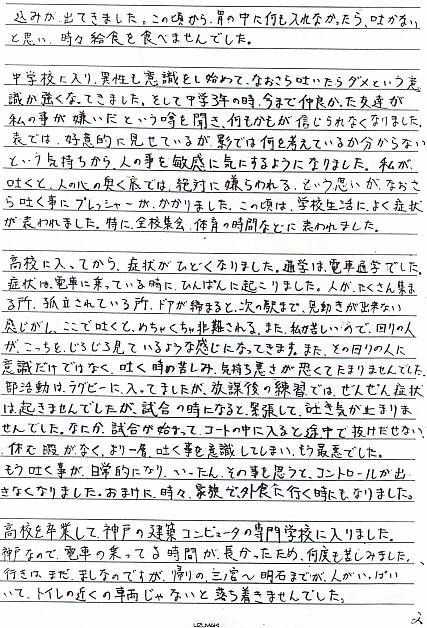 込みが出てきました。この頃から、胃の中に何も入れなかったら、吐かない
と思い、時々給食を食べませんでした。
中学校に入り、異性も意識をし始めて、なおさら吐いたらダメという意
識が強くなってきました。そして中学3年の時、今まで仲良かった友達が
私の事が嫌いだという噂を聞き、何もかもが信じられなくなりました。
表では、好意的に見せているが、影では何を考えているか分からない
という気持ちから、人の事を敏感に気にするようになりました。私が、
吐くと、人の心の奥く底では、絶対に嫌らわれる、という思いが、なおさ
ら吐く事にプレッシャーが、かかりました。この頃は、学校生活に、よく症状
が表われました。特に、全校集会、体育の時間などに表われました。
高校に入ってから、症状がひどくなりました。通学は、電車通学でした。
症状は、電車に乗っている時に、ひんぱんに起こりました。人が、たくさん集ま
る所、孤立されている所、ドアが締まると、次の駅まで、見動きが出来ない
感じがし、ここで吐くと、めちゃくちゃ非難される、また、私が苦しいので、回りの人
が、こっちを、じろじろ見ているような感じになってきます。また、その回りの人に
意識だけではなく、吐く時の苦しみ、気持ち悪さが恐くてたまりませんでした。
部活動は、ラグビーに、入ってましたが、放課後の練習では、ぜんぜん症状
は、起きませんでしたが、試合の時になると、緊張して、吐き気が止まりま
せんでした。なにか、試合が始まって、コートの中に入ると途中で抜けだせない、
休む暇がなく、より一層、吐く事を意識してしまい、もう最悪でした。
もう吐く事が、日常的になり、いったん、その事を思うと、コントロールが出
きなくなりました。おまけに、時々、家族で、外食に行く時にもなりました。
高校を卒業して、神戸の建築コンピュータの専門学校に入りました。
神戸なので、電車の乗ってる時間が、長かったため、何度も苦しみました。
行きは、まだ、ましなのですが、帰りの、三宮〜明石までが、人がいっぱい
いて、トイレの近くの車両じゃないと落ち着きませんでした。
2